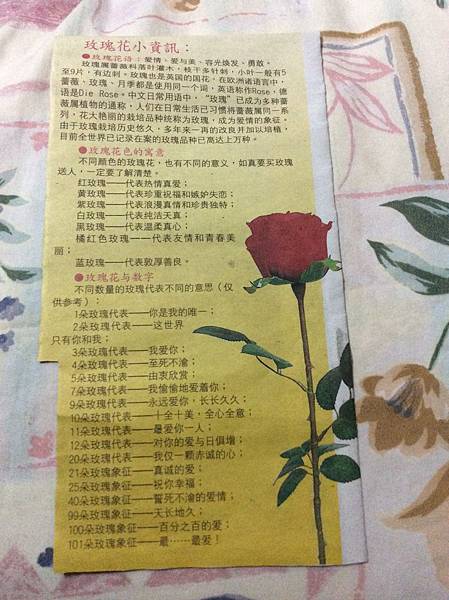 玫瑰花小資訊：
●玫瑰花语：爱情、爱与美、容光焕发、勇敢。
玫瑰属蔷薇科落叶灌木，枝干多针刺，小叶一般有5
至9片，有边刺。玫瑰也是英国的国花，在欧洲诸语言中，
蔷薇、玫瑰、月季都是使用同一个词，英语称作Rose，德
语是Die Rose。中文日常用语中，“玫瑰”已成为多种蔷
薇属植物的通称，人们在日常生活已习惯将蔷薇属同一系
列，花大艳丽的栽培品种统称为玫瑰，成为爱情的象征。
由于玫瑰栽培历史悠久，多年来一再的改良并加以培植，
目前全世界已记录在案的玫瑰品种已高达上万种。
●玫瑰花色的寓意
不同颜色的玫瑰花，也有不同的意义，如真要买玫瑰
送人，一定要了解清楚。
红玫瑰——代表热情真爱；
黄玫瑰——代表珍重祝福和嫉妒失恋；
紫玫瑰——代表浪漫真情和珍贵独特；
白玫瑰——代表纯洁天真；
黑玫瑰——代表温柔真心；
橘红色玫瑰——代表友情和青春美
丽；
蓝玫瑰——代表敦厚善良。
●玫瑰花与数字
不同数量的玫瑰代表不同的意思（仅
供参考）：
1朵玫瑰代表——你是我的唯一；
2朵玫瑰代表——这世界
只有你和我；
3朵玫瑰代表——我爱你；
4朵玫瑰代表——至死不渝；
5朵玫瑰代表——由衷欣赏；
7朵玫瑰代表——我偷偷地爱着你；
9朵玫瑰代表——永远爱你，长长久久；
10朵玫瑰代表——十全十美，全心全意；
11朵玫瑰代表——最爱你一人；
12朵玫瑰代表——对你的爱与日俱增；
20朵玫瑰代表——我仅一颗赤诚的心；
21朵玫瑰象征——真诚的爱；
25朵玫瑰象征——祝你幸福；
40朵玫瑰象征——誓死不渝的爱情；
99朵玫瑰象征——天长地久；
100朵玫瑰象征——百分之百的爱；
101朵玫瑰象征——最……最爱！